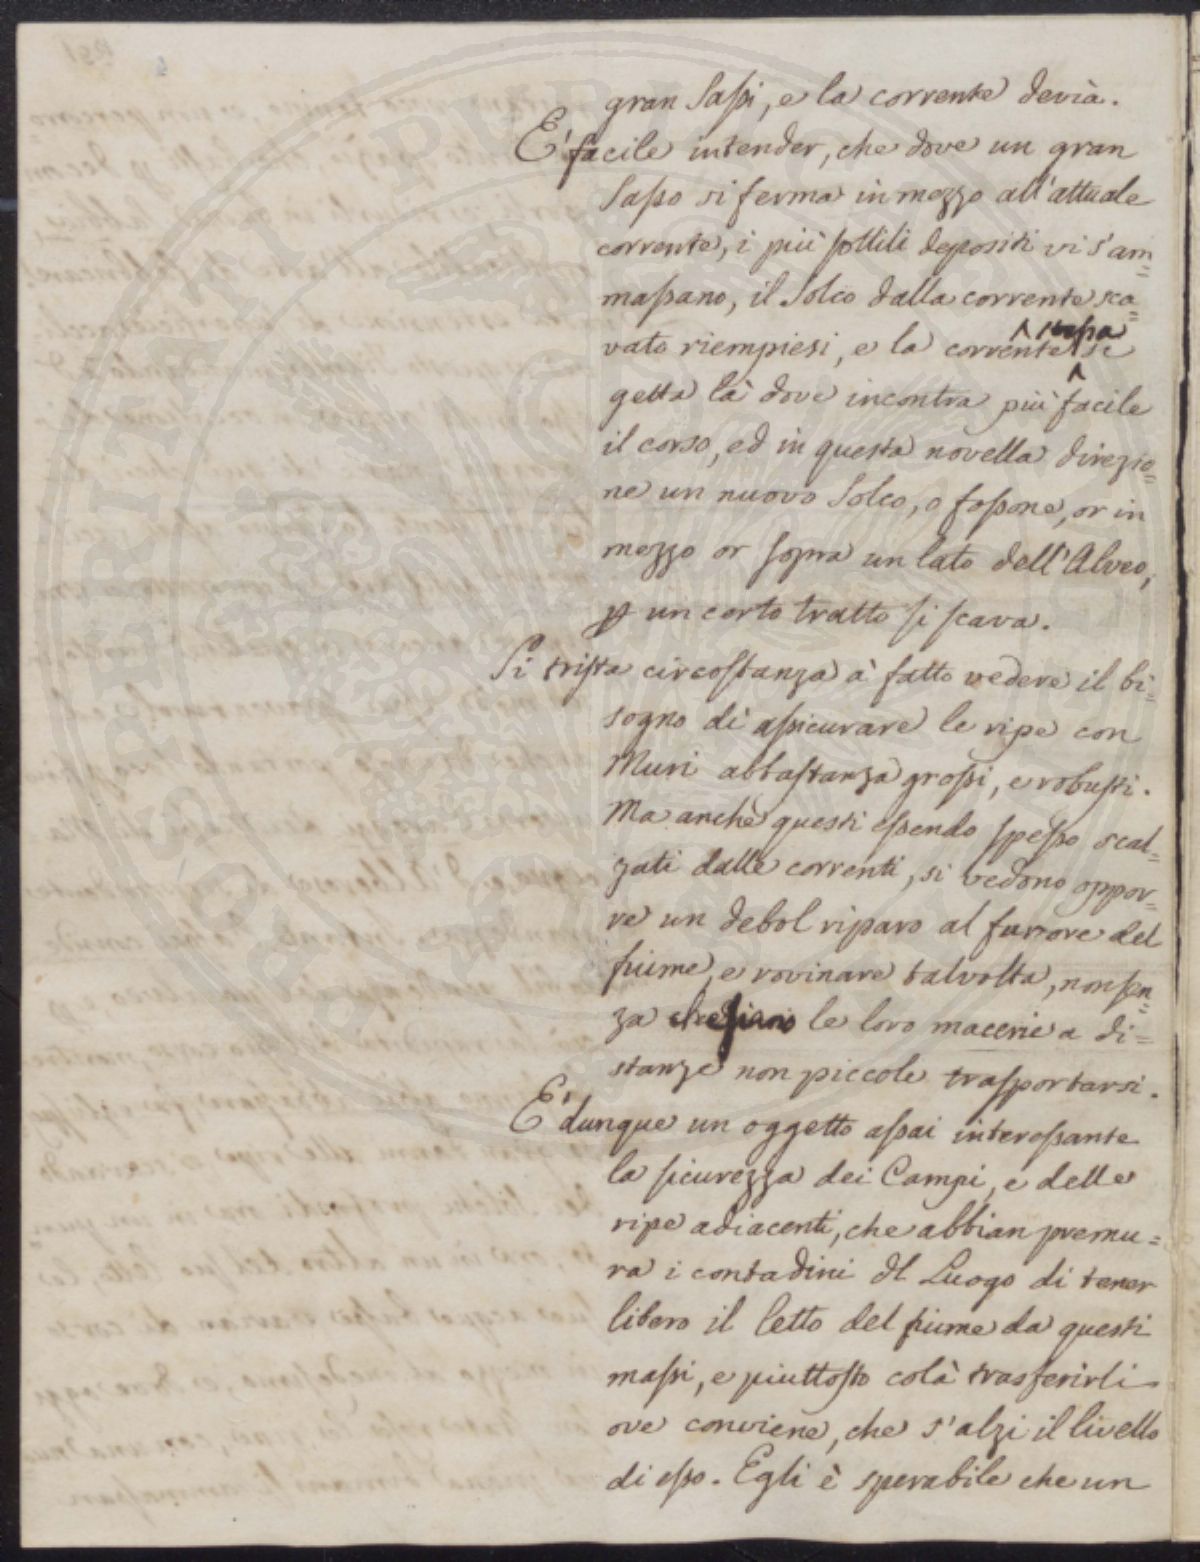 gran Sassi, e la corrente devia.
E' facile intender, che dove un gran
Sasso si ferma in mezzo all'attuale
corrente, i più sottili depositi vi s'am=
massano, il Solco dalla corrente sca=
vato riempiesi, e la corrente stessa si
getta là dove incontra più facile
il corso, ed in questa novella direzio=
ne un nuovo Solco, o fossone, or in
mezzo or sopra un lato dell'Alveo,
p un corto tratto si scava.
Si trista circostanza à fatto vedere il bi=
sogno di assicurare le ripe con
Muri abbastanza grossi, e robusti.
Ma anche questi essendo spesso scal=
zati dalle correnti, si vedono oppor=
re un debol riparo al furore del
fiume, e rovinare talvolta, non sen=
za le loro macerie a di=
stanze non piccole trasportarsi.
E' dunque un oggetto assai interessante
la sicurezza dei Campi, e delle
ripe adiacenti, che abbian premu=
ra i contadini dl Luogo di tener
libero il letto del fiume da questi
massi, e piuttosto colà trasferirli
ove conviene, che s'alzi il livello
di esso. Egli è sperabile che un
PROSPERITATI PUBLICAE